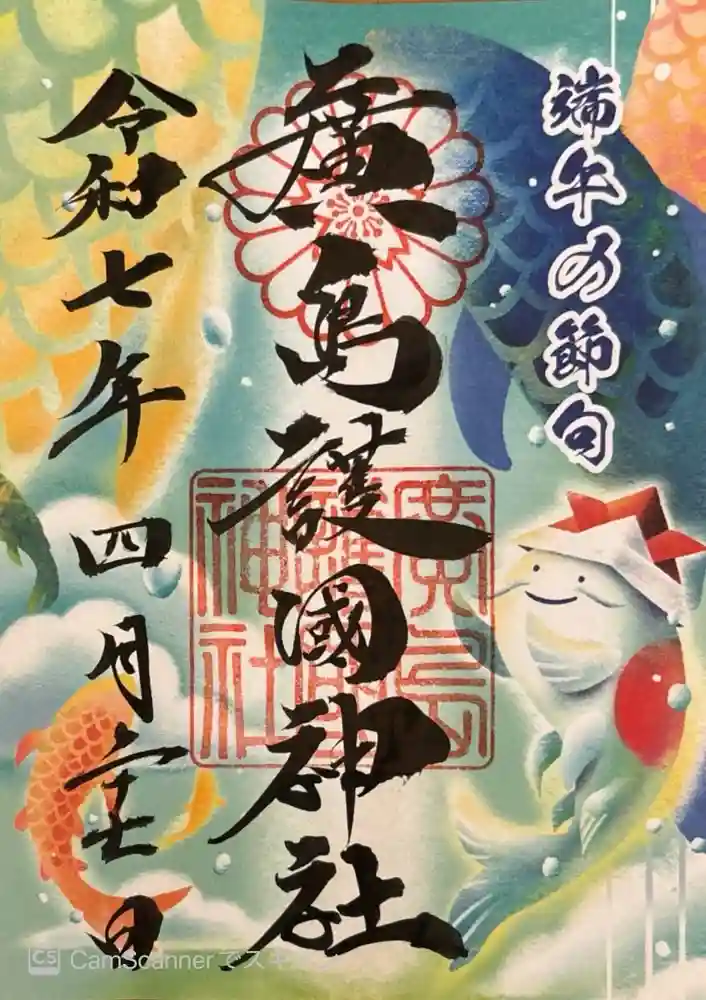 端午の節句
廣島護國神社
廣島
護國
神社
令和七年 四月二十七日
CS CamScanner でスキ